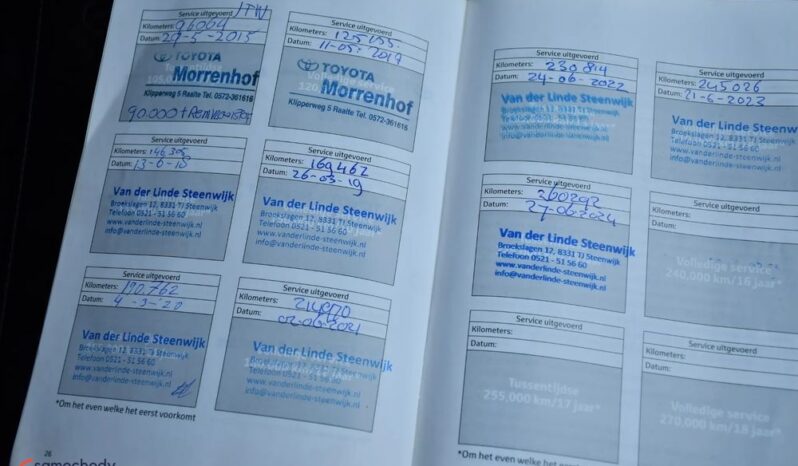 Service uitgevoerd JTW
Kilometers: 96004
Datum: 29-5-2015
TOYOTA
Morrenhof
Klipperweg 5 Raalte Tel. 0572-361616
90.000 +
Service uitgevoerd
Kilometers:
Datum: 11-05-2017
TOYOTA
Morrenhof
Klipperweg 5 Raalte Tel. 0572-361616
Service uitgevoerd
Kilometers:
Datum:
Van der Linde Steenwijk
Broekslagen 12, 8331 TJ Steenwijk
Telefoon 0521 - 51 56 60
info@vanderlinde-steenwijk.nl
Service uitgevoerd
Kilometers: 169462
Datum: 26-03-19
Van der Linde Steenwijk
Broekslagen 12, 8331 TJ Steenwijk
Telefoon 0521 - 51 56 60
info@vanderlinde-steenwijk.nl
Service uitgevoerd
Kilometers: 190762
Datum: 4-3-'20
Van der Linde Steenwijk
Broekslagen 12, 8331 TJ Steenwijk
Telefoon 0521 - 51 56 60
info@vanderlinde-steenwijk.nl
Service uitgevoerd
Kilometers:
Datum: 02-06-2021
Van der Linde Steenwijk
Broekslagen 12, 8331 TJ Steenwijk
Telefoon 0521 - 51 56 60
info@vanderlinde-steenwijk.nl
*Om het even welke het eerst voorkomt
26
Service uitgevoerd
Kilometers: 230814
Datum: 24-06-2022
Van der Linde Steenwijk
Broekslagen 12, 8331 TJ Steenwijk
Telefoon 0521 - 51 56 60
info@vanderlinde-steenwijk.nl
Service uitgevoerd
Kilometers: 245026
Datum: 21-6-2023
Van der Linde Steenwijk
Broekslagen 12, 8331 TJ Steenwijk
Telefoon 0521 - 51 56 60
info@vanderlinde-steenwijk.nl
Service uitgevoerd
Kilometers: 260292
Datum: 27-06-2024
Van der Linde Steenwijk
Broekslagen 12, 8331 TJ Steenwijk
Telefoon 0521 - 51 56 60
info@vanderlinde-steenwijk.nl
Service uitgevoerd
Kilometers:
Datum:
Volledige service
240,000 km/16 jaar*
Service uitgevoerd
Kilometers:
Datum:
Tussentijdse
255,000 km/17 jaar*
Service uitgevoerd
Kilometers:
Datum:
Volledige service
270,000 km/18 jaar*
*Om het even welke het eerst voorkomt